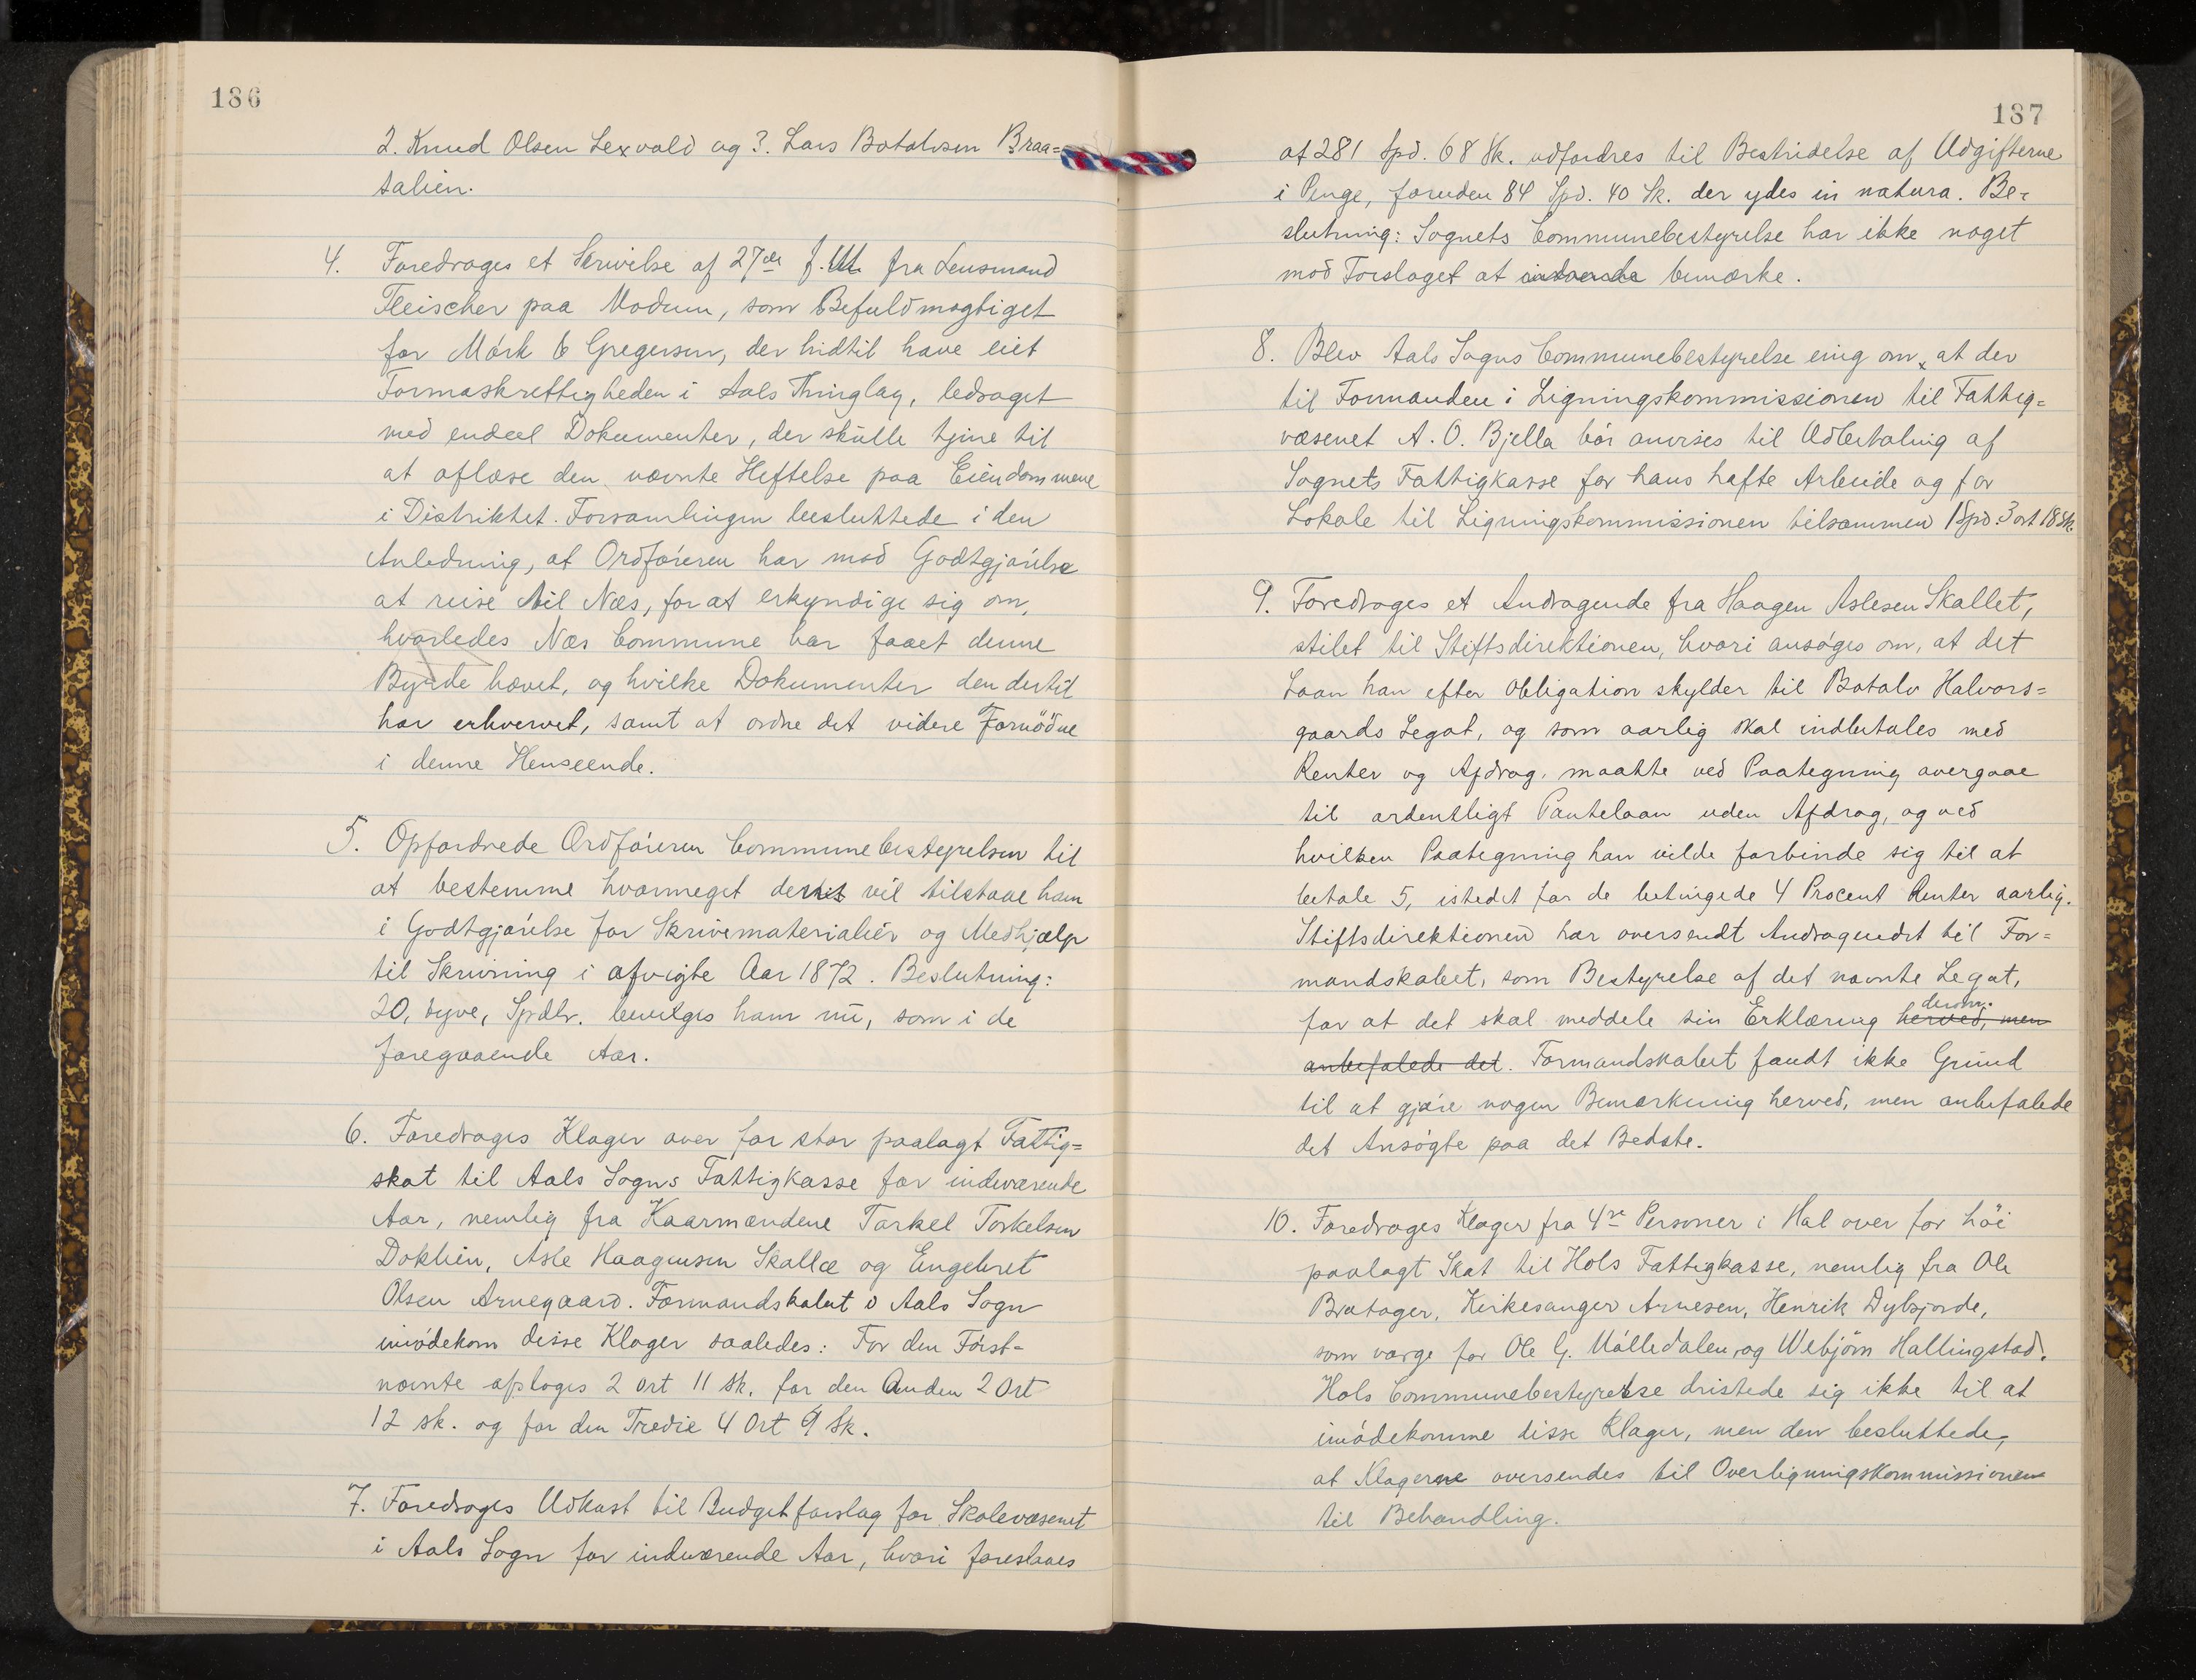 186
2. Knud Olsen Lexvold og 3. Lars Botolvsen Braa=
talien.
4. Foredroges et Skrivelse af 27de f. M. fra Lensmand
Fleischer paa Modum, som Befuldmægtiget
for Mørk & Gregersen, der hidtil have eiet
Tømmaskrettigheden i Aals Thinglag, ledsaget
med endeel Dokumenter, der skulle tjene til
at aflæse den nævnte Heftelse paa Eiendommene
i Distriktet. Forsamlingen besluttede i den
Anledning, at Ordføreren har mod Godtgjørelse
at reise til Næs, for at erkyndige sig om,
hvorledes Næs Commune har faaet denne
Byrde hævet, og hvilke Dokumenter den dertil
har erhvervet, samt at ordne det videre Fornödne
i denne Henseende.
5. Opfordrede Ordføreren Communebestyrelsen til
at bestemme hvormeget dertil vil tilstaae ham
i Godtgjørelse for Skrivematerialier og Medhjælp
til Skrivning i afvigte Aar 1872. Beslutning:
20, tyve, Spdlr. bevilges ham nu, som i de
foregaaende Aar.
6. Foredroges Klager over for stor paalagt Fattig=
skat til Aals Sogns Fattigkasse for indeværende
Aar, nemlig fra Kaarmændene Torkel Torkelsen
Doklien, Asle Haagensen Skalle og Engebret
Olsen Arnegaard. Formandskabet i Aals Sogn
imødekom disse Klager saaledes: For den Først-
nævnte afsloges 2 ort 11 sk. for den Anden 2 Ort
12 sk. og for den Tredie 4 Ort 9 Sk.
7. Foredroges Udkast til Budgetforslag for Skolevæsenet
i Aals Sogn for indeværende Aar, hvori foreslaaes
187
at 281 Spd. 68 Sk. udfordres til Bestridelse af Udgifterne
i Penge, foruden 84 Spd. 40 Sk. der ydes in natura. Be=
slutning: Sognets Communebestyrelse har ikke noget
mod Forslaget at bemærke.
8. Blev Aals Sogns Communebestyrelse enig om, at der
til Formanden i Ligningskommissionen til Fattig=
væsenet A. O. Bjella bør anvises til Udbetaling af
Sognets Fattigkasse for hans hafte Arbeide og for
Lokale til Ligningskommissionen tilsammen 1 Spd. 3 ort 18 Sk.
9. Foredroges et Andragende fra Haagen Aslesen Skallet,
stilet til Stiftsdirektionen, hvori ansøges om, at det
Laan han efter Obligation skylder til Botolv Halvors=
gaards Legat, og som aarlig skal indbetales med
Renter og Afdrag, maatte ved Paategning overgaae
til ordentligt Pantelaan uden Afdrag, og ved
hvilken Paategning han vilde forbinde sig til at
betale 5, istedet for de betingede 4 Procent Renter aarlig.
Stiftsdirektionen har oversendt Andragendet til For=
mandskabet, som Bestyrelse af det nævnte Legat,
for at det skal meddele sin Erklæring herved, men derom.
anbefalede det. Formandskabet fandt ikke Grund
til at gjøre nogen Bemærkning herved, men anbefalede
det Ansøgte paa det Bedste.
10. Foredroges Klager fra 4re Personer i Hol over for höi
paalagt Skat til Hols Fattigkasse, nemlig fra Ole
Bratager, Kirkesanger Arnesen, Henrik Dybsjorde,
som værge for Ole G. Mølledalen, og Webjörn Hallingstad.
Hols Communebestyrelse dristede sig ikke til at
imødekomme disse Klager, men den besluttede,
at Klagerne oversendes til Overligningskommissionen
til Behandling.